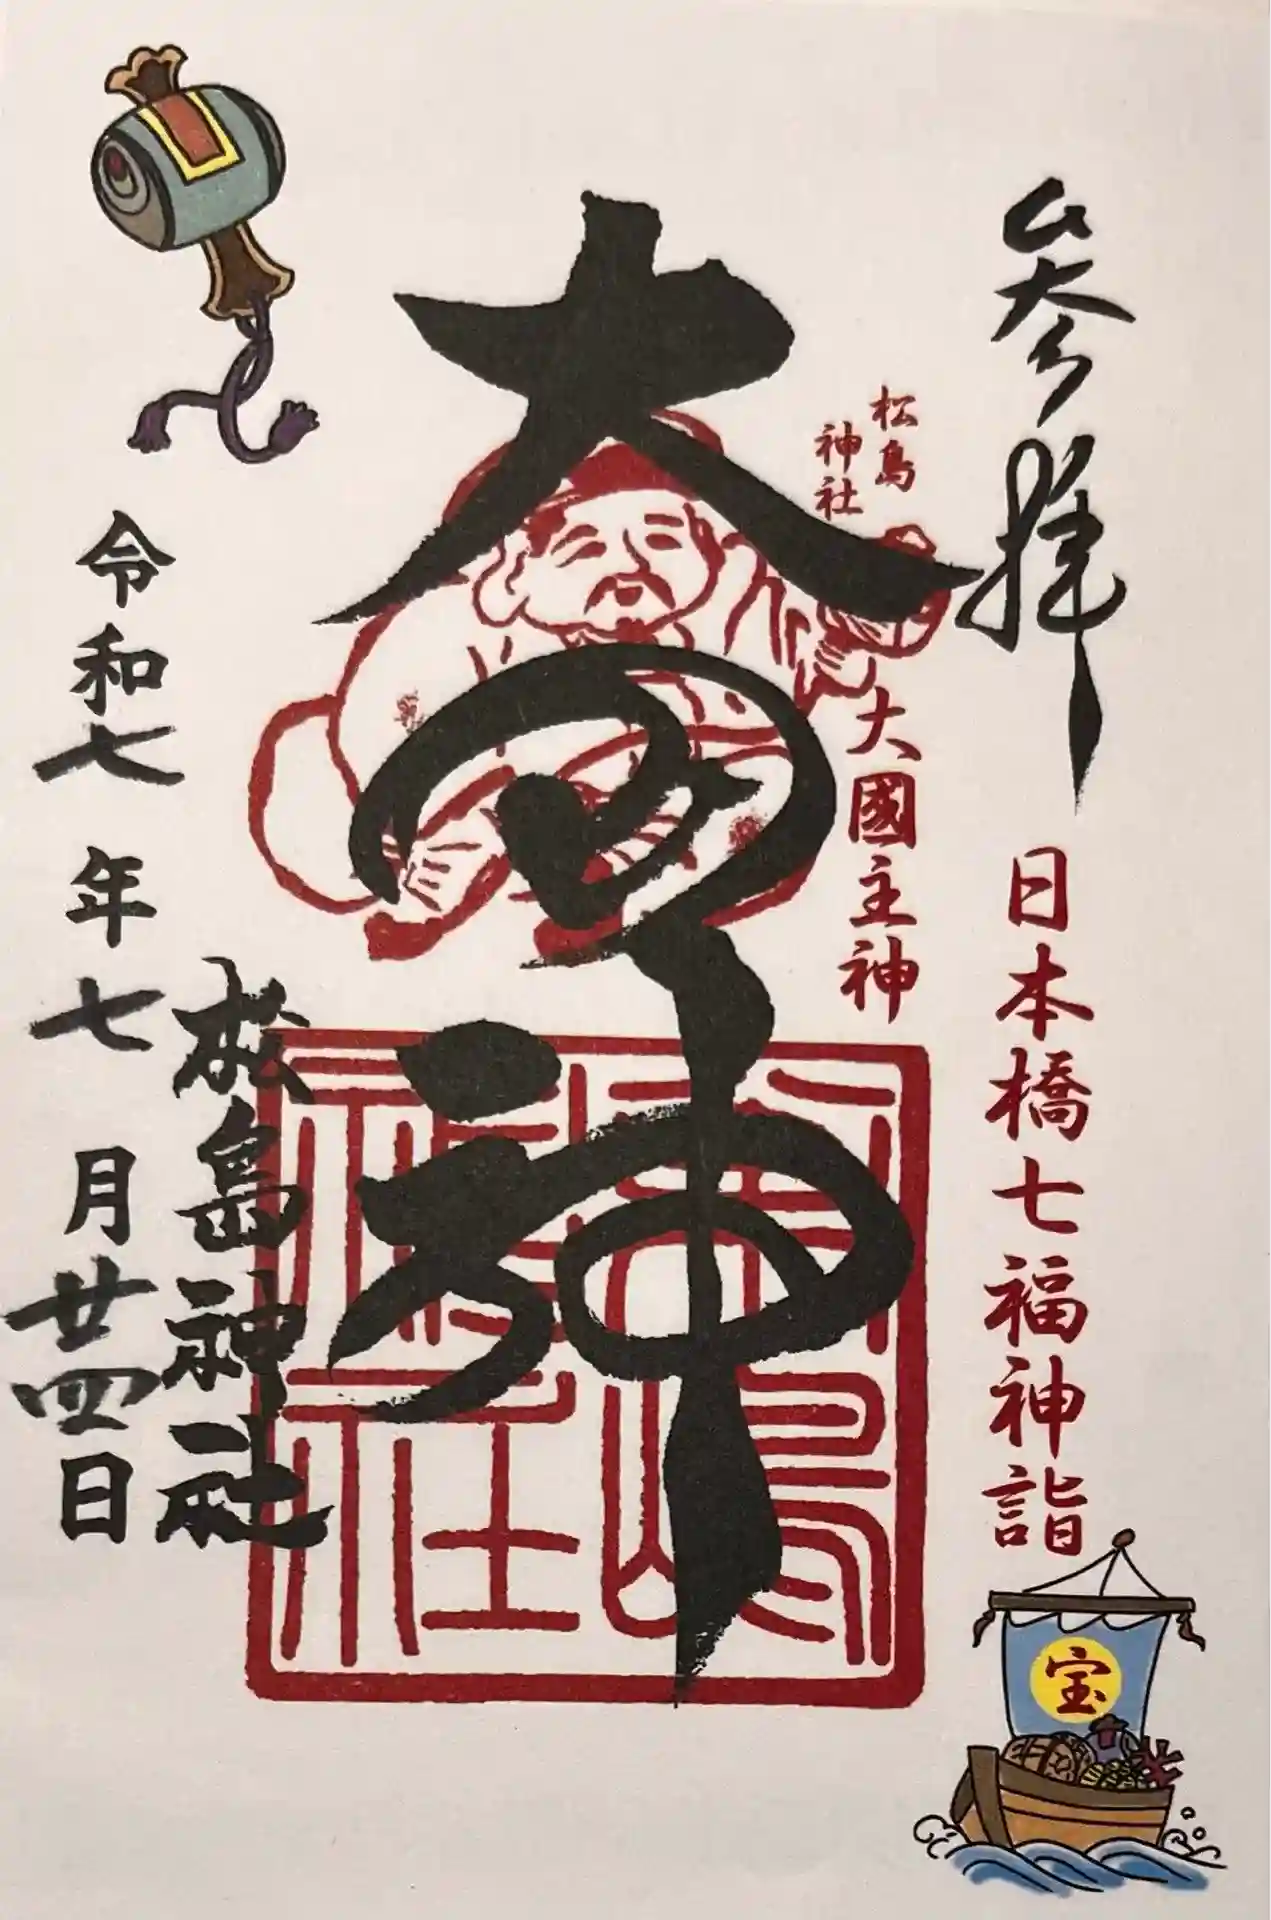 参拝
日本橋七福神詣
宝
松島
神社
大國主神
大国神
松嶋
神社
松島神社
令和七年七月廿四日